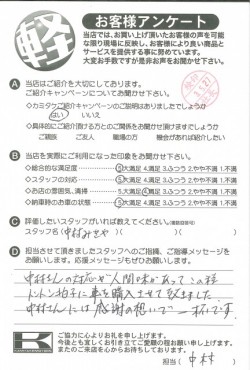 軽
お客様アンケート
当店では、お買い上げ頂いたお客様の声を可能な限り現場に反映し、お客様により良い商品とサービスを提供する事に努めています。
大変お手数ですが是非お声をお聞かせ下さい。
A 当店はご紹介を大切にしております。
ご紹介キャンペーンについてお聞かせ下さい。
◇カエタケご紹介キャンペーンのご説明はありましたでしょうか
はい いいえ
◇具体的にご紹介頂ける方とのご関係をお聞かせ頂けますでしょうか
ご親族 ご友人 職場の方 機会があれば紹介したい
B 当店を実際にご利用になった印象をお聞かせ下さい。
◇総合的な満足度 5.大満足 4.満足 3.ふつう 2.やや不満 1.不満
◇スタッフの対応 5.大満足 4.満足 3.ふつう 2.やや不満 1.不満
◇お店の雰囲気、清掃 5.大満足 4.満足 3.ふつう 2.やや不満 1.不満
◇納車時のお車の状態 5.大満足 4.満足 3.ふつう 2.やや不満 1.不満
C 評価したいスタッフがいれば教えてください。(複数回答可)
スタッフ名(中村みさや)
D 担当させて頂きましたスタッフへのご指摘、ご指導メッセージをお願いします。応援メッセージもぜひお願いします。
中村さんの対応や人間味があってこの程
トントン拍子に車を購入させて頂きました。
中村さんには感謝の想いで一杯です。
K
ご協力に心よりお礼を申し上げます。
今後とも宜しくお引き立てご愛顧の程お願い申し上げます。
またのご来店を心からお待ちしております。
担当(中村)